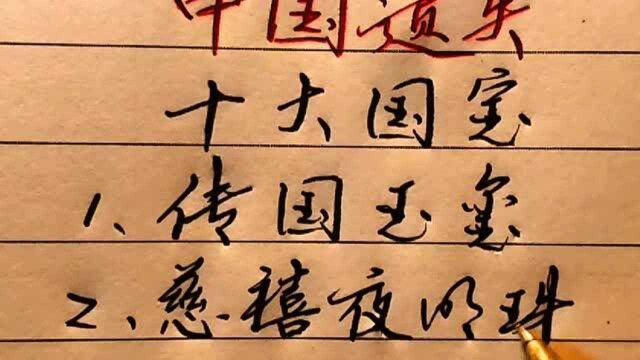 中国遗失
十大国宝
1、传国玉玺
2、慈禧夜明珠